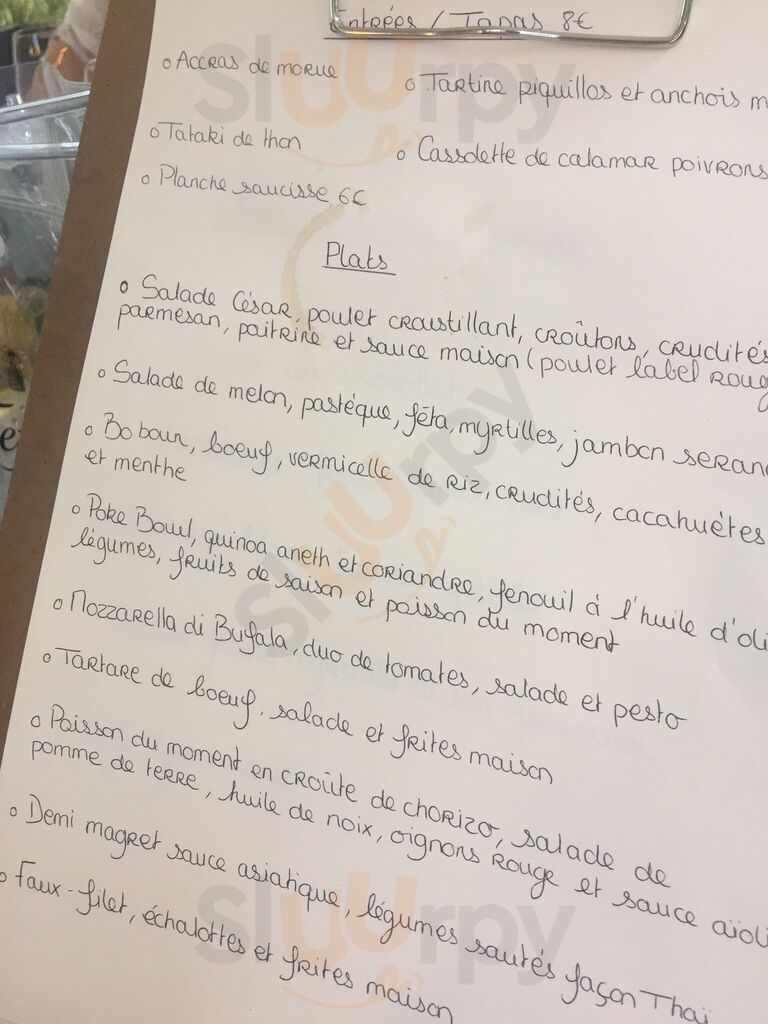 Entrées / Tapas 8€
o Accras de morue
o Tartine piquillos et anchois m
o Tataki de thon
o Cassolette de calamar poivrons
o Planche saucisse 6€
Plats
o Salade César, poulet croustillant, croûtons, crudités
parmesan, poitrine et sauce maison (poulet label Roug
o Salade de melon, pastèque, fêta, myrtilles, jambon seran
o Bo boun, boeuf, vermicelle de riz, crudités, cacahuètes
et menthe
o Poke Bowl, quinoa aneth et coriandre, fenouil à l'huile d'oli
légumes, fruits de saison et poisson du moment
o Mozzarella di Bufala, duo de tomates, salade et pesto
o Tartare de boeuf, salade et frites maison
o Poisson du moment en croûte de chorizo, salade de
pomme de terre, huile de noix, oignons rouge et sauce aïoli
o Demi magret sauce asiatique, légumes sautés façon Thaï
o Faux-filet, échalottes et frites maison
Sluurpy
Sluurpy
Sluurpy